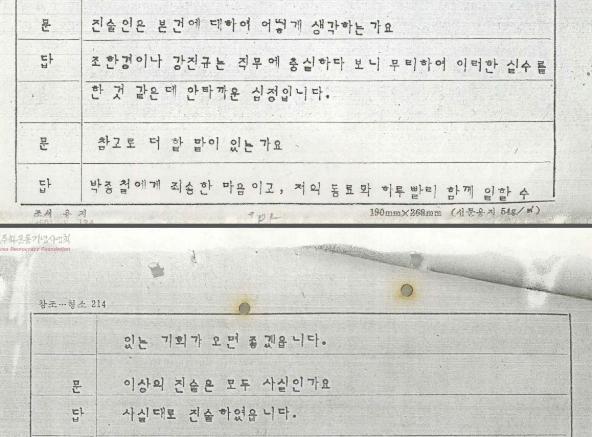 문 진술인은 본건에 대하여 어떻게 생각하는가요
답 조한경이나 강진규는 직무에 충실하다 보니 무리하여 이러한 실수를
한 것 같은데 안타까운 심정입니다.
문 참고로 더 할 말이 있는가요
답 박종철에게 죄송한 마음이고, 저의 동료와 하루빨리 함께 일할 수
조서 용지 190mm×268mm (신문용지 54g/㎡)
창조…형소 214
있는 기회가 오면 좋겠읍니다.
문 이상의 진술은 모두 사실인가요
답 사실대로 진술하였읍니다.